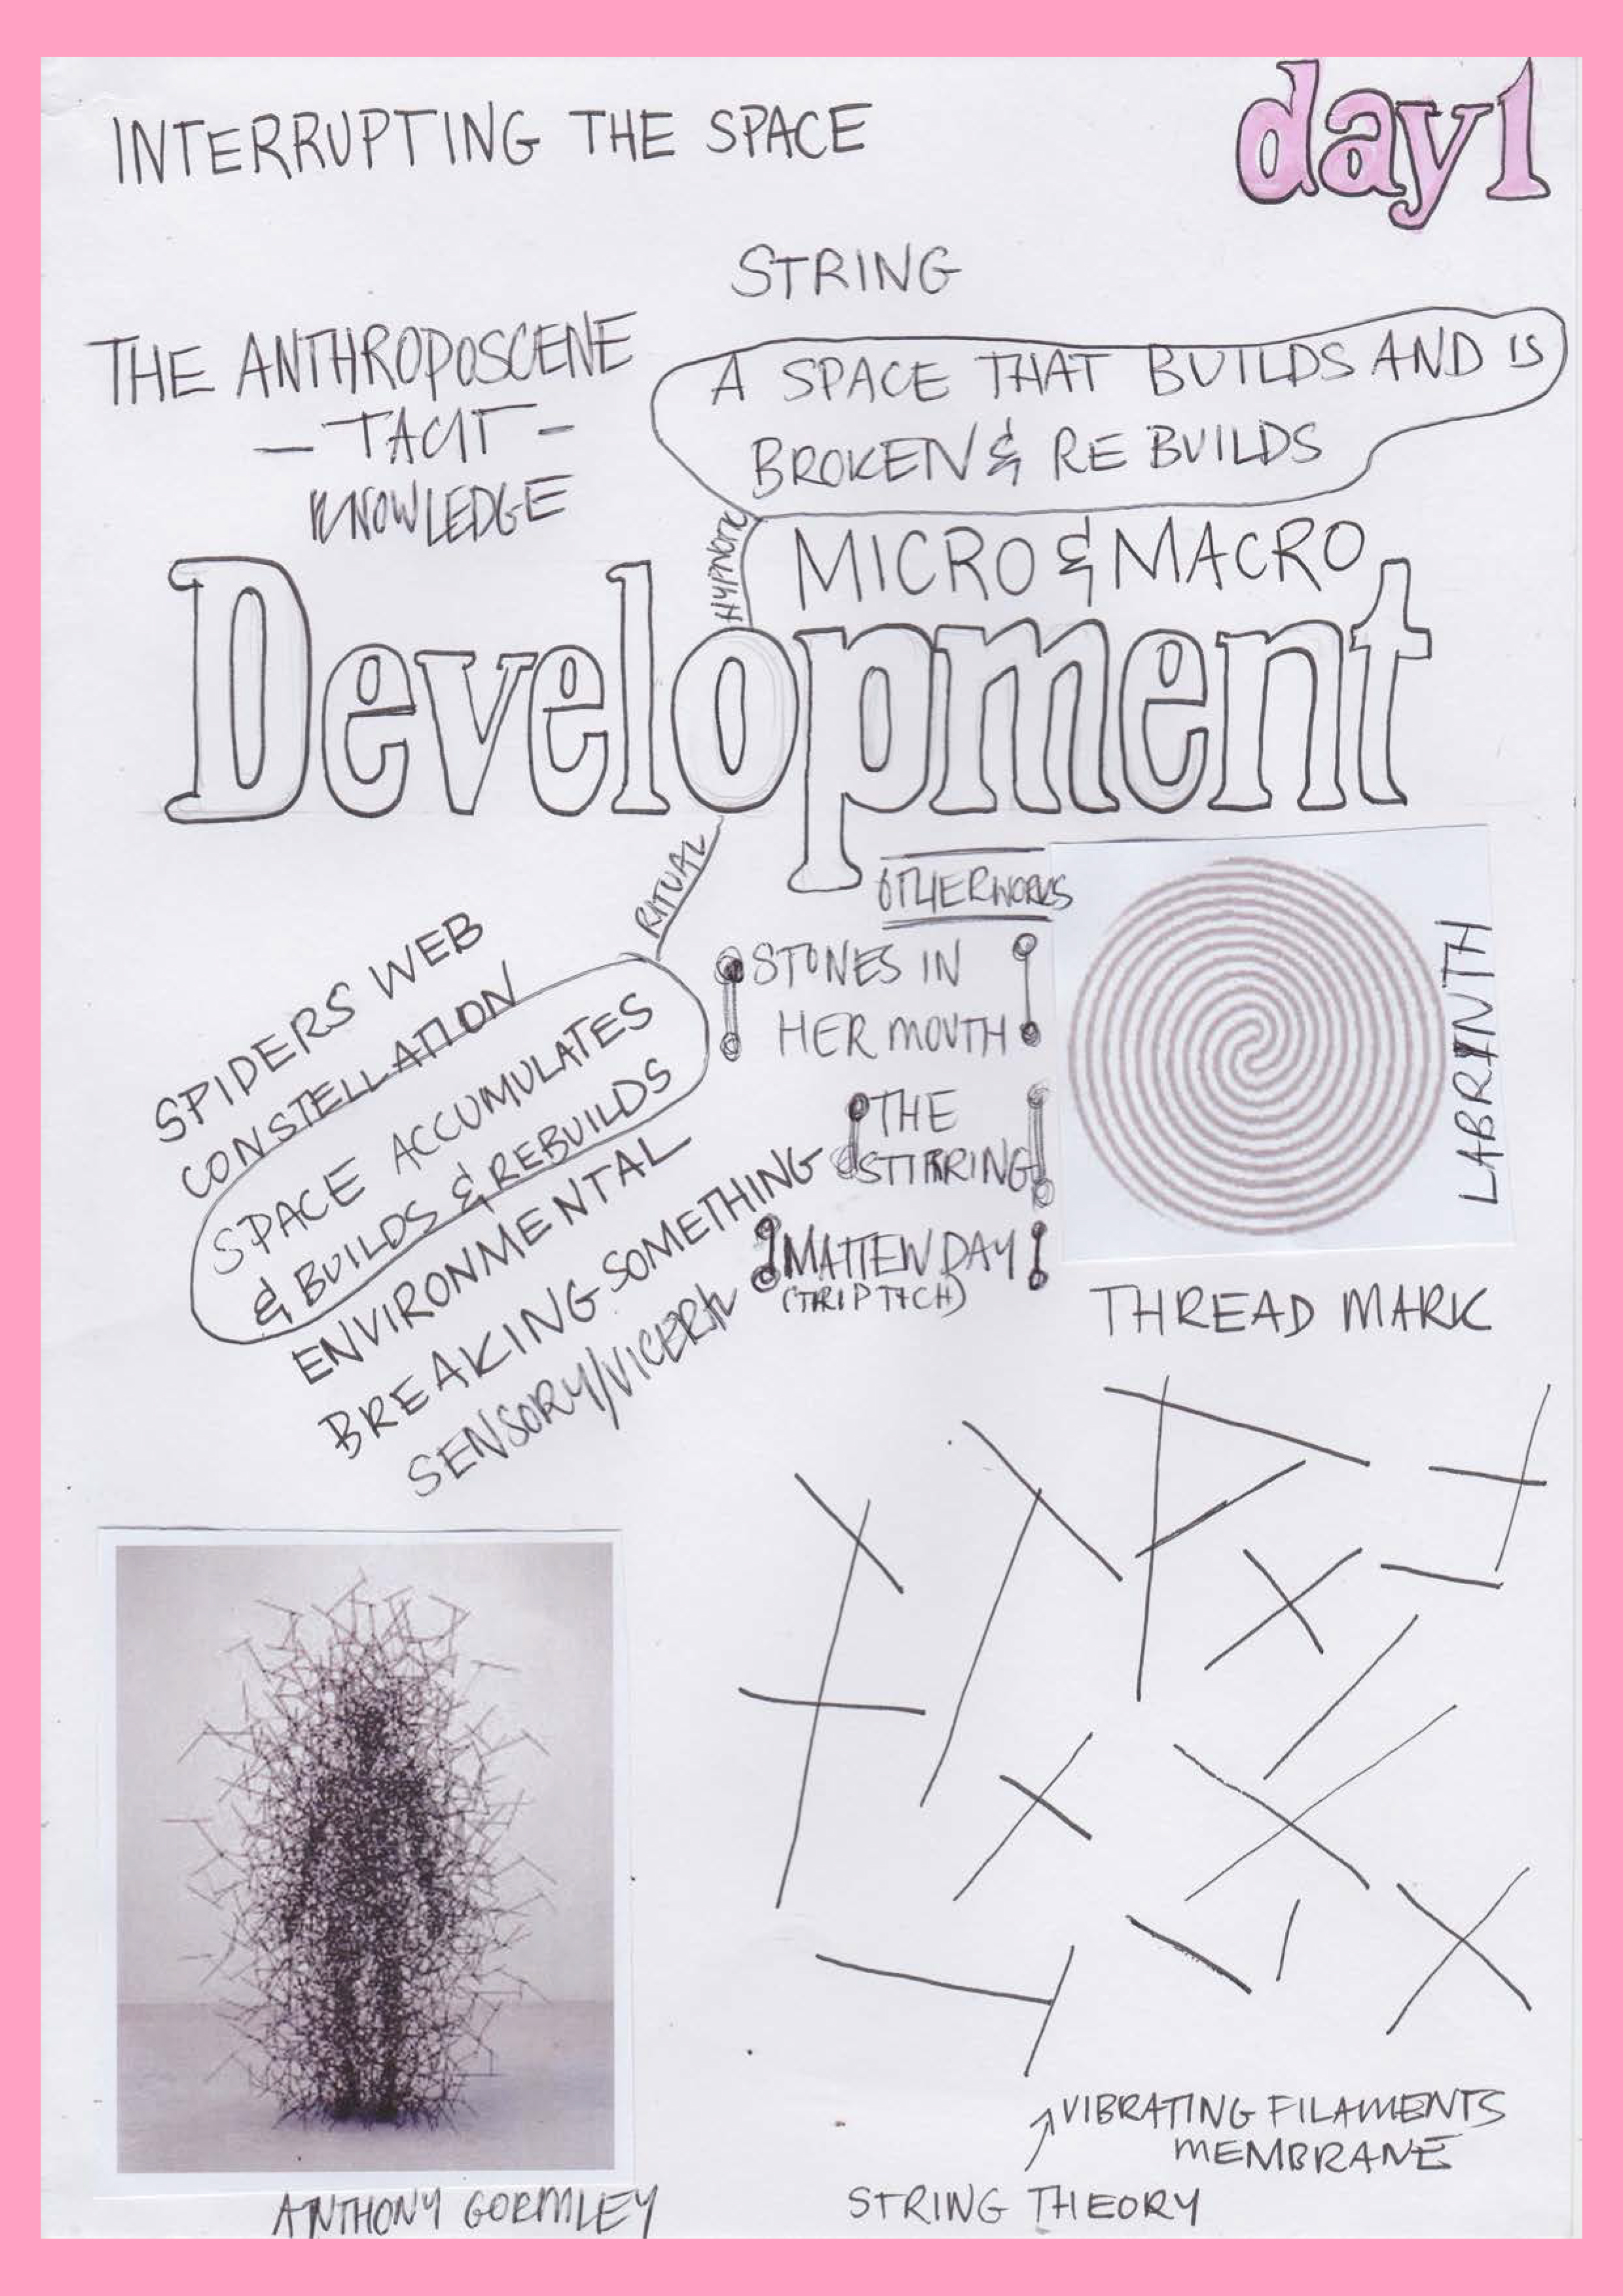 INTERRUPTING THE SPACE
day1
STRING
THE ANTHROPOSCENE
- TACIT -
KNOWLEDGE
A SPACE THAT BUILDS AND IS
BROKEN & RE BUILDS
HYPNOTIC
MICRO & MACRO
Development
RITUAL
SPIDERS WEB
CONSTELLATION
SPACE ACCUMULATES
& BUILDS & REBUILDS
ENVIRONMENTAL
BREAKING SOMETHING
SENSORY/VICERAL
OTHERWORKS
STONES IN
HER MOUTH
THE
STIRRING
MATTEW DAY
(TRIPTYCH)
LABRINTH
THREAD MARK
ANTHONY GORMLEY
VIBRATING FILAMENTS
MEMBRANE
STRING THEORY